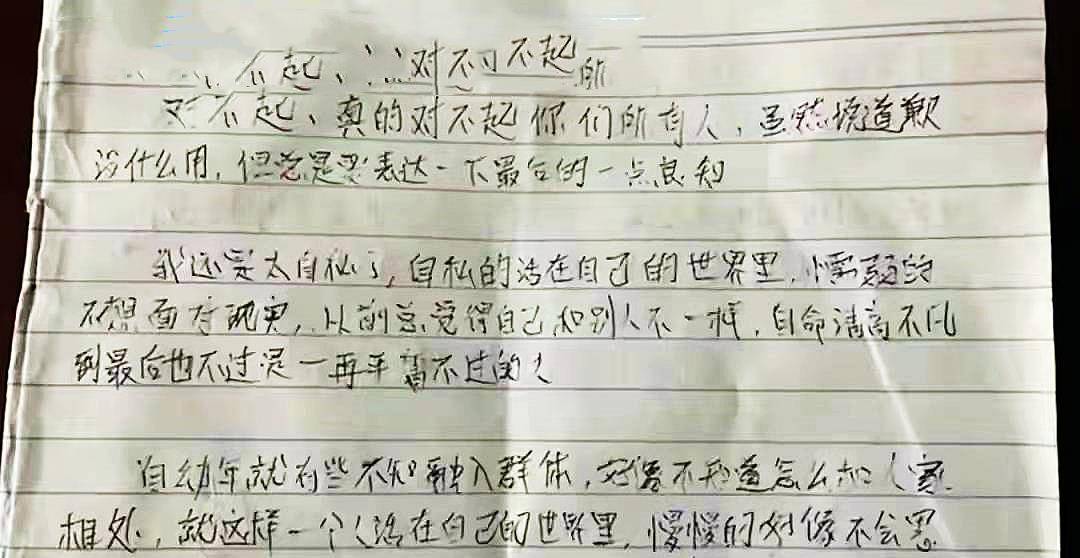 不起、对不 不起 所
对不起、真的对不起你们所有人，虽然说道歉
没什么用，但总是要表达一下最后的一点良知
我还是太自私了，自私的活在自己的世界里，懦弱的
不想面对现实，以前总觉得自己和别人不一样，自命清高不凡
到最后也不过是一再平 不过的人
自幼年就有些不知融入群体，好像不知道怎么和人家
相处，就这样一个人活在自己的世界里，慢慢的好像不会思